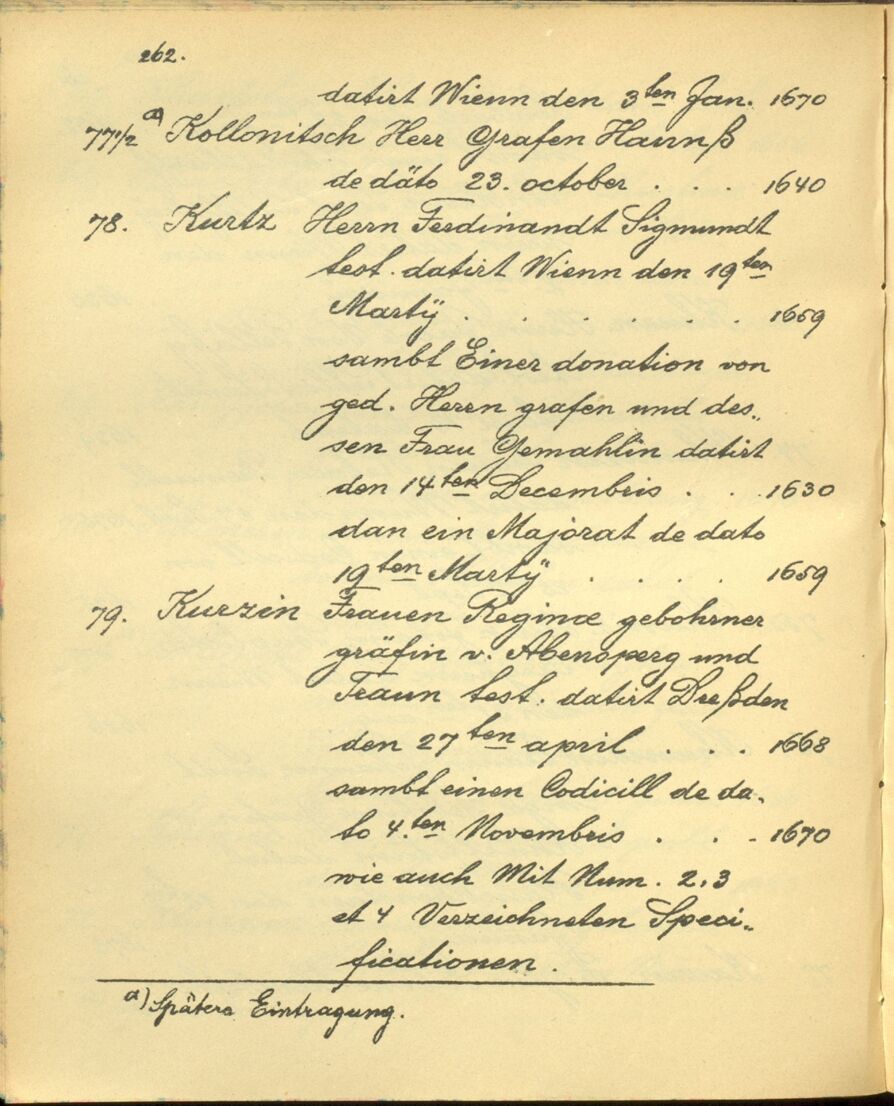 262.
datirt Wienn den 3ten Jan. 1670
77 1/2 a) Kollonitsch Herr Grafen Hannß
de däto 23. october . . . 1640
78. Kurtz Herrn Ferdinandt Sigmundt
test. datirt Wienn den 19ten
Martÿ . . . . . . 1659
sambt Einer donation von
ged. Herrn grafen und des„
sen Frau Gemahlin datirt
den 14ten Decembris . . . 1630
dan ein Majorat de dato
19ten Martÿ . . . . 1659
79. Kurzin Frauen Reginæ gebohrner
gräfin v. Abensperg und
Traun test. datirt Dreßden
den 27ten april . . . 1668
sambt einen Codicill de da„
to 4.ten Novembris . . . 1670
wie auch Mit Num. 2,3
et 4 Verzeichneten Speci„
ficationen.
a) Spätere Eintragung.